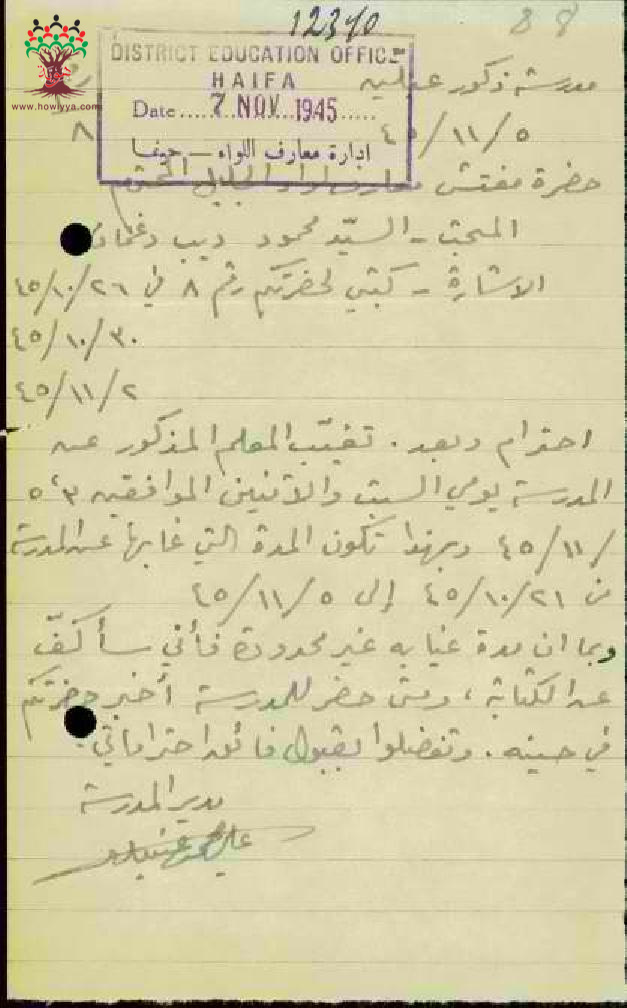 12340
88
DISTRICT EDUCATION OFFICE
HAIFA
Date.....7 NOV. 1945.....
ادارة معارف اللواء – حيفا
www.howiyya.com
مدرسة ذكور عبلين
٤٥/١١/٥
٨
حضرة مفتش معارف لواء الجليل المحترم
المبحث – السيّد محمود ديب دغمان
الاشارة – كتبي لحضرتكم رقم ٨ في ٤٥/١٠/٢٦
٤٥/١٠/٣٠
٤٥/١١/٢
احترام وبعد . تغيّب المعلم المذكور عن
المدرسة يومي السبت والاثنين الموافقين ٣، ٥
/٤٥/١١ وبهذا تكون المدة التي غابها عن المدرسة
من ٤٥/١٠/٢١ إلى ٤٥/١١/٥
وبما ان مدة غيابه غير محدودة فأني سأكفّ
عن الكتابة ، ومتى حضر للمدرسة أخبر حضرتكم
في حينه . وتفضلوا بقبول فائق احتراماتي .
مدير المدرسة